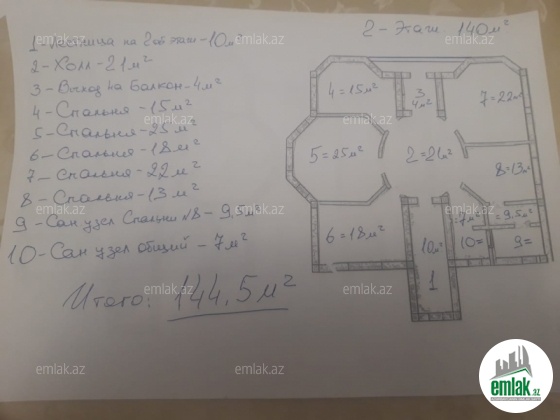 2 - Этаж 140м²
1 - Лестница на 2ой этаж - 10м²
2 - Холл - 21м²
3 - Выход на Балкон - 4м²
4 - Спальня - 15м²
5 - Спальня - 25м²
6 - Спальня - 18м²
7 - Спальня - 22м²
8 - Спальня - 13м²
9 - Сан узел Спальни №8 - 9,5м²
10 - Сан узел общий - 7м²
Итого: 144.5м²
4 = 15м²
3
4м²
7 = 22м²
5 = 25м²
2 = 21м²
8 = 13м²
6 = 18м²
10м²
1
7м²
10 =
9,5м²
9 =
emlak.az
emlak.az
emlak.az
emlak.az
emlak.az
emlak.az
emlak.az
emlak.az
emlak.az
emlak.az
emlak.az
emlak.az
emlak.az